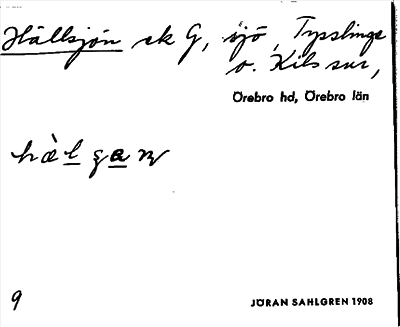 Hällsjön ek G, sjö, Tysslinge
o. Kils snr,
Örebro hd, Örebro län
hàlgan
9
JÖRAN SAHLGREN 1908